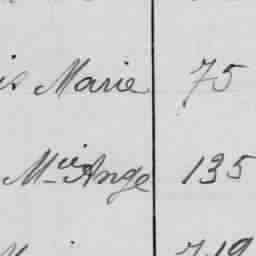 is Marie 75
Mie Ange 135
719